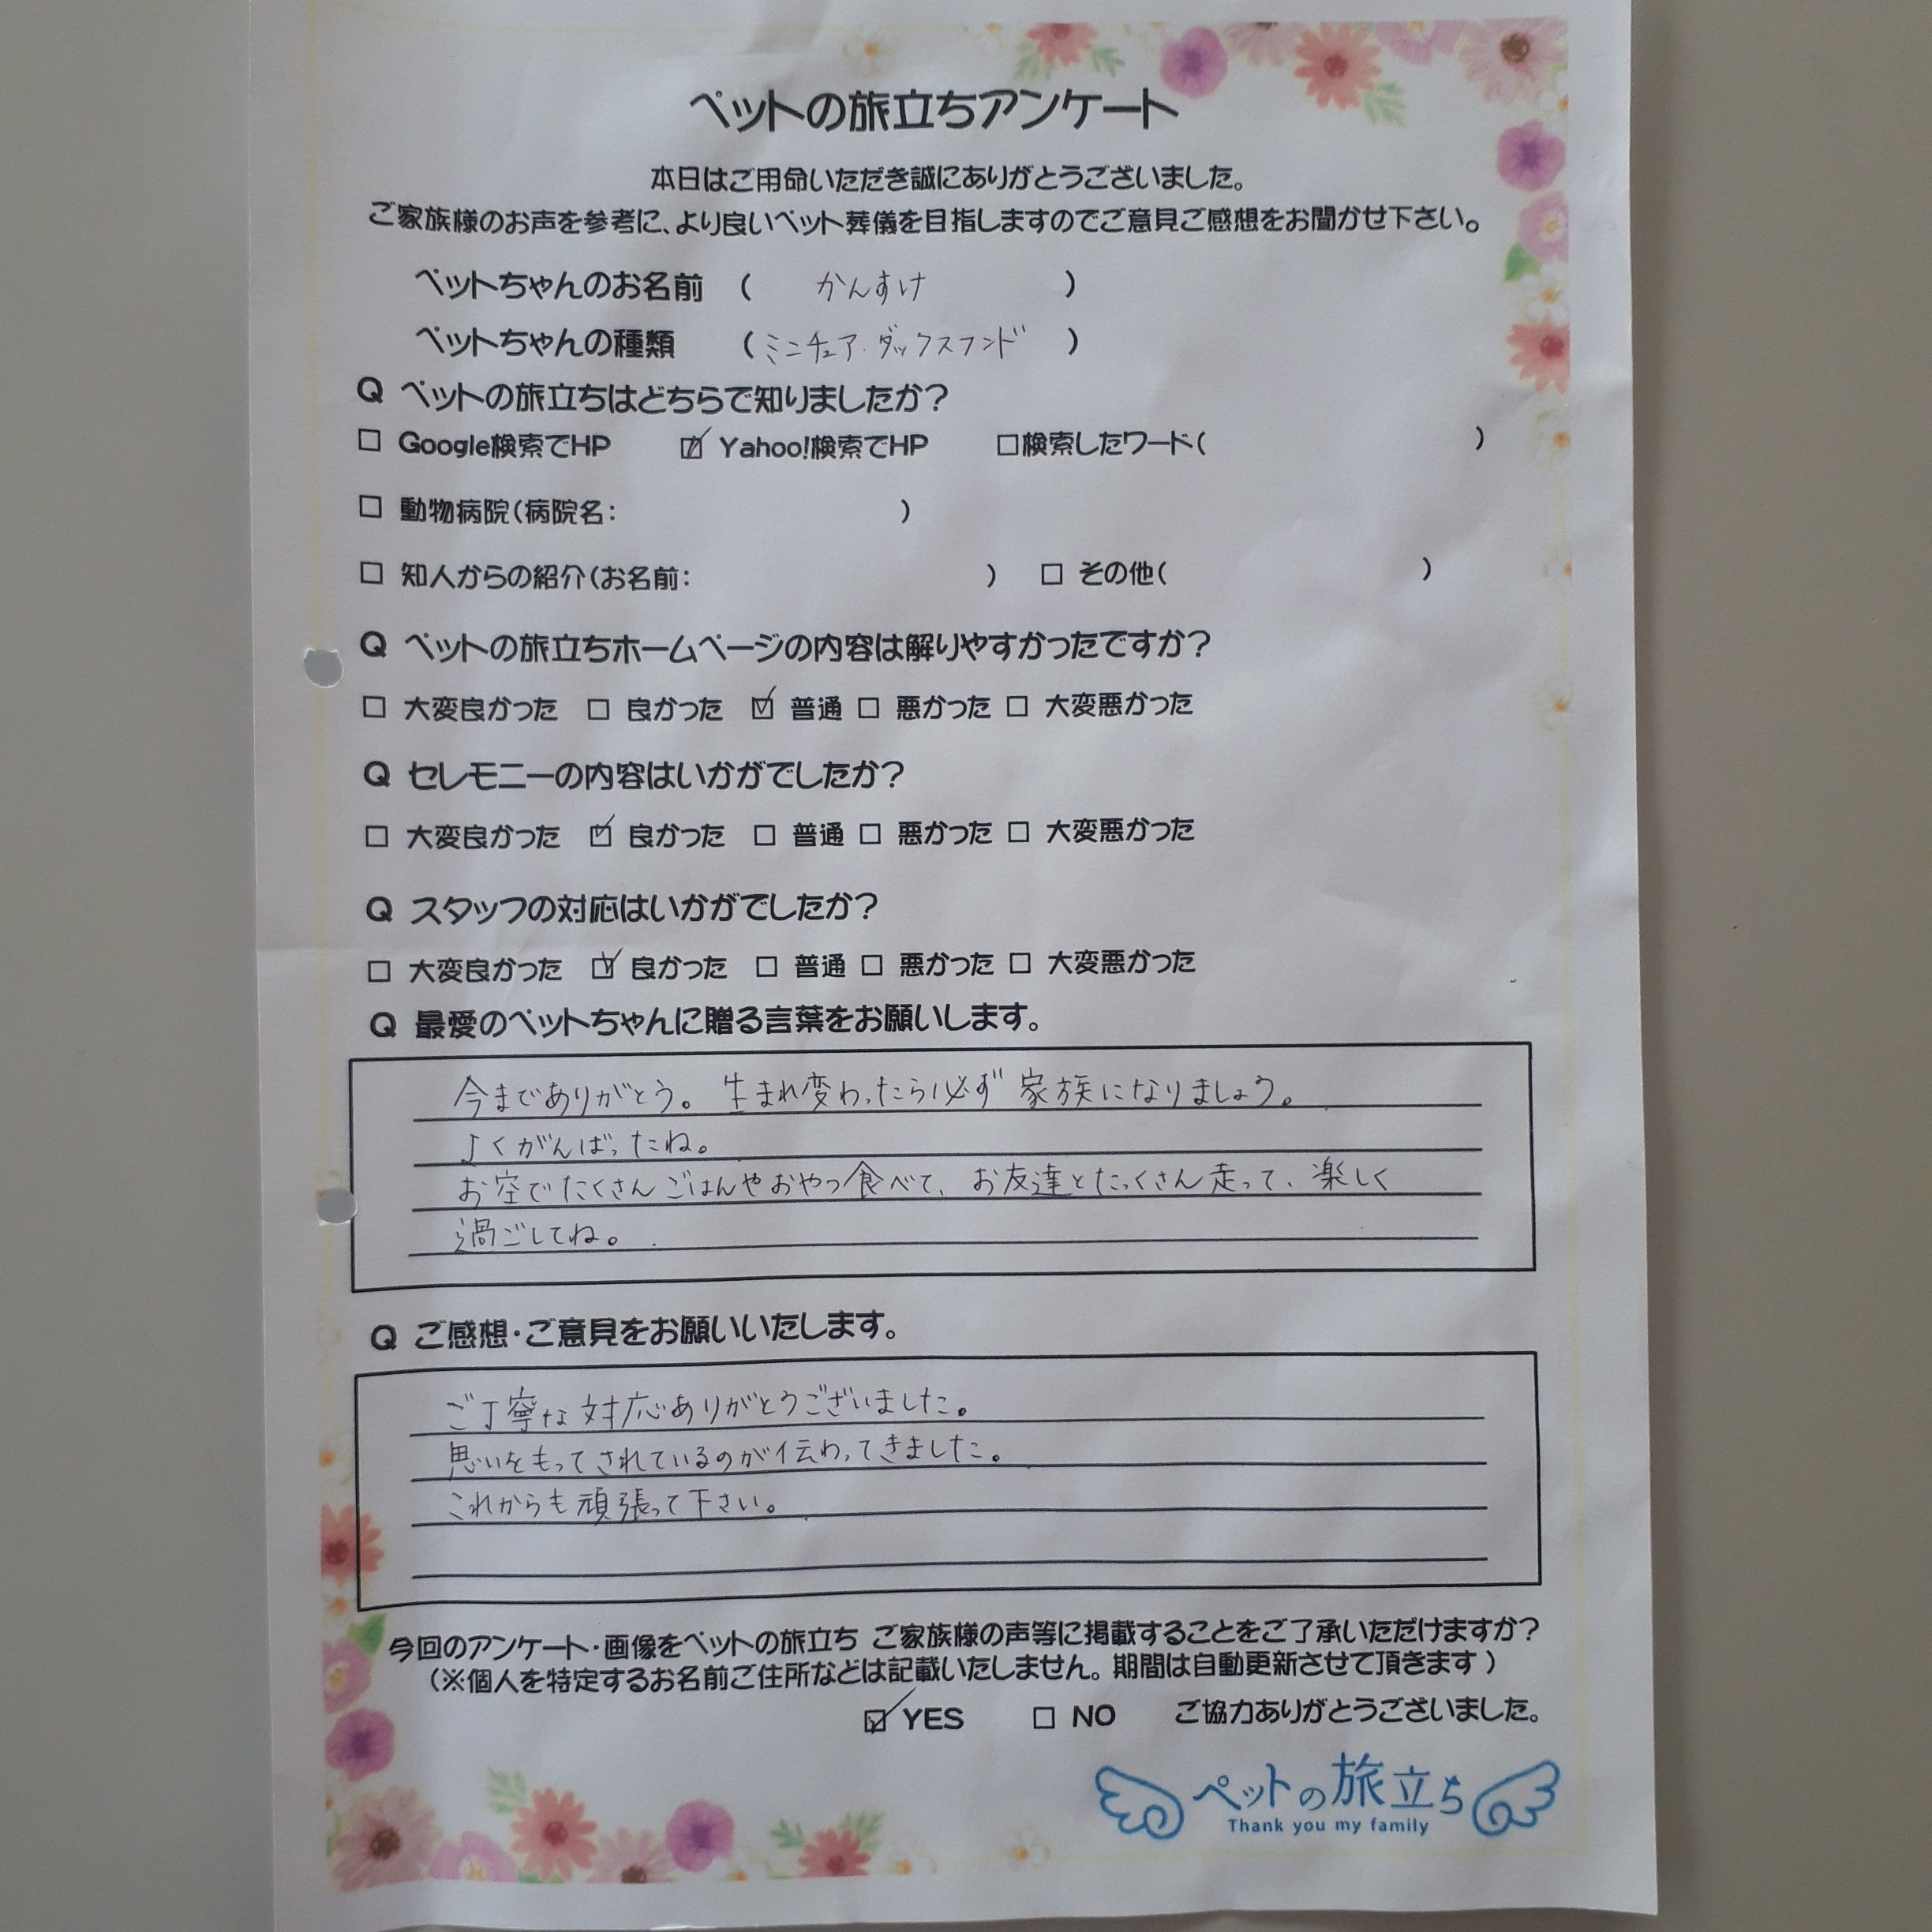 ペットの旅立ちアンケート
本日はご用命いただき誠にありがとうございました。
ご家族様のお声を参考に、より良いペット葬儀を目指しますのでご意見ご感想をお聞かせ下さい。
ペットちゃんのお名前 ( かんすけ )
ペットちゃんの種類 (ミニチュア・ダックスフンド )
Q ペットの旅立ちはどちらで知りましたか?
□ Google検索でHP ☑ Yahoo!検索でHP □検索したワード( )
□ 動物病院(病院名: )
□ 知人からの紹介(お名前: ) □ その他( )
Q ペットの旅立ちホームページの内容は解りやすかったですか?
□ 大変良かった □ 良かった ☑ 普通 □ 悪かった □ 大変悪かった
Q セレモニーの内容はいかがでしたか?
□ 大変良かった ☑ 良かった □ 普通 □ 悪かった □ 大変悪かった
Q スタッフの対応はいかがでしたか?
□ 大変良かった ☑ 良かった □ 普通 □ 悪かった □ 大変悪かった
Q 最愛のペットちゃんに贈る言葉をお願いします。
今までありがとう。生まれ変わったら必ず家族になりましょう。
よくがんばったね。
お空でたくさんごはんやおやつ食べて、お友達とたっくさん走って、楽しく
過ごしてね。
Q ご感想・ご意見をお願いいたします。
ご丁寧な対応ありがとうございました。
思いをもってされているのが伝わってきました。
これからも頑張って下さい。
今回のアンケート・画像をペットの旅立ち ご家族様の声等に掲載することをご了承いただけますか?
(※個人を特定するお名前ご住所などは記載いたしません。期間は自動更新させて頂きます)
☑ YES □ NO ご協力ありがとうございました。
ペットの旅立ち
Thank you my family